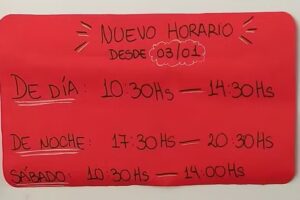 NUEVO HORARIO
DESDE 03/01
DE DÍA: 10:30HS — 14:30HS
DE NOCHE: 17:30HS — 20:30HS
SÁBADO: 10:30HS — 14:00HS